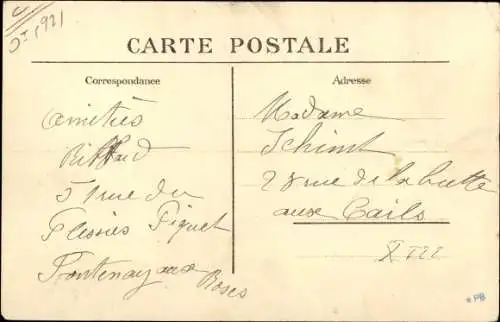 1921
CARTE POSTALE
Correspondance
Adresse
Amitiés
5 rue du
Plessis Piquet
Fontenay aux Roses
Madame
Schimt
28 rue de la butte
aux Cails
XIII
PB